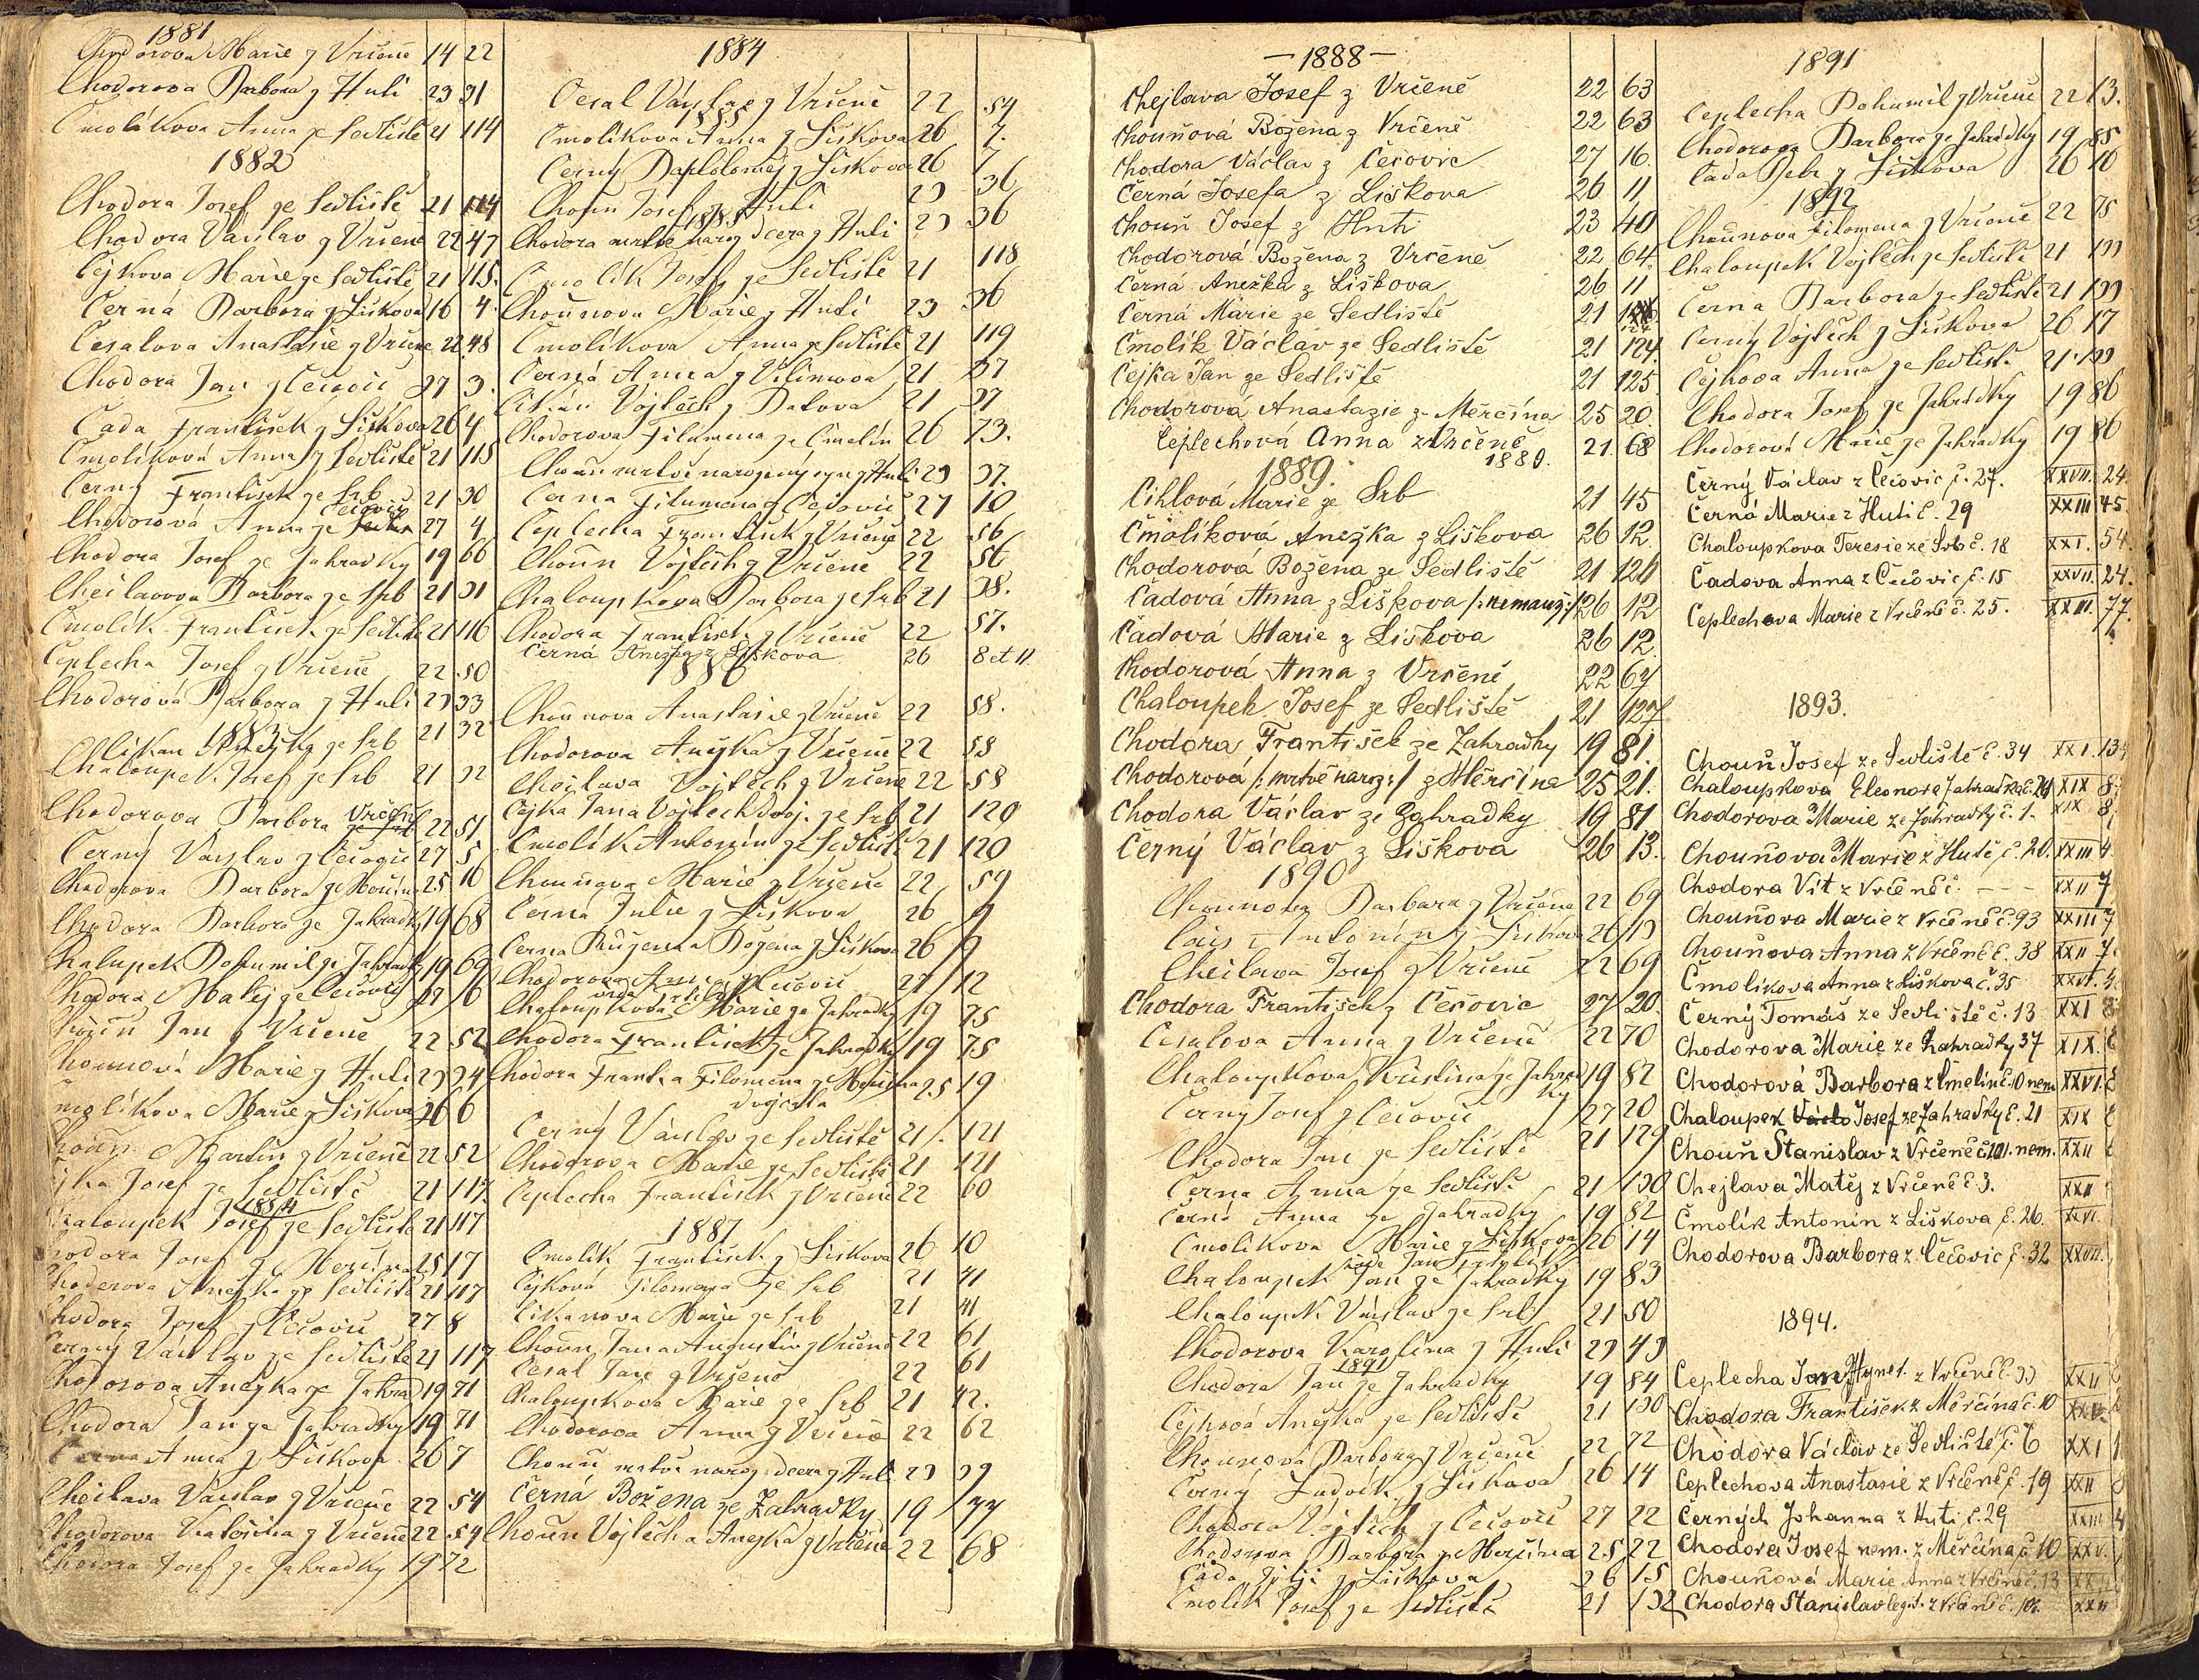 1881
Chodorova Marie z Vrčeně 14 22
Chodorova Barbora z Huti 23 31
Čmolikova Anna ze Sedliště 21 114
1882
Chodora Josef ze Sedliště 21 114
Chodora Václav z Vrčeně 22 47
Čejkova Marie ze Sedliště 21 115.
Černá Barbora z Liškova 16 4.
Česalova Anastasie z Vrčeně 22 48
Chodora Jan z Čečovic 27 3.
Čada František z Liškova 26 4
Čmolíková Anna z Sedliště 21 115
Černý František ze Srb 21 30
Čečovic
Chodorová Anna ze 27 4
Chodora Josef ze Zahradky 19 66
Cheilavova Barbora ze Srb 21 31
Čmolík František ze Sedliště 21 116
Ceplecha Josef z Vrčeně 22 50
Chodorová Barbora z Huti 23 33
1883
ze Srb 21 32
Chaloupek Josef ze Srb 21 32
Vrčeně
Chodorova Barbora 22 51
Černý Václav z Čečovic 27 5
Chodorova Barbora z Měrčína 25 16
Chodora Barbora ze Zahradky 19 68
Kalupek Bohumil ze Zahradky 19 69
Chodora Matěj ze Čečovic 27 6
Choun Jan z Vrčeně 22 52
Chounová Marie z Huti 23 34
molíkova Marie z Liškova 26 6
Choun Martin z Vrčeně 22 52
jka Josef ze Sedliště 21 117
1884
Chaloupek Josef ze Sedliště 21 117
Chodora Josef z Merčína 25 17
Chodorova Anežka ze Sedliště 21 117
Chodora Josef z Čečovic 27 8
Černý Václav ze Sedliště 21 117
Chodorova Anežka ze Zahrad 19 71
Chodora Jan ze Zahradky 19 71
Černa Anna z Liškova 26 7
Cheilava Václav z Vrčeně 22 54
Chodorova Kateřina z Vrčeně 22 54
Chodora Josef ze Zahradky 19 72
1884
Česal Václav z Vrčeně 22 54
1885
Čmolíkova Anna z Liškova 26 7.
Černý Bartoloměj z Liškova 26 7
Choun Josef z Huti 23 36
1885
Chodora mrtvě naroz dcera z Huti 23 36
Čmolík Josef ze Sedliště 21 118
Chounova Marie z Huti 23 36
Čmolíkova Anna z Sedliště 21 119
Černá Anna z 21 37
Cikán Vojtěch z 21 37
Chodorova Filomena ze Cmelín 26 73.
Choun mrtvě narozený syn z Huti 23 37.
Černa Filumena z Čečovic 27 10
Ceplecha František z Vrčeně 22 56
Choun Vojtěch z Vrčeně 22 56
Chaloupkova Barbora ze Srb 21 38.
Chodora František z Vrčeně 22 57.
Černá Anežka z Liškova 26 8 et 11.
1886
Chounova Anastasie z Vrčeně 22 58.
Chodorova Anežka z Vrčeně 22 58
Cheilava Vojtěch z Vrčeně 22 58
Čejka Jan a Vojtěch dvoj. ze Srb 21 120
Čmolík Antonín ze Sedliště 21 120
Chounova Marie z Vrčeně 22 59
Černá Julie z Liškova 26 9
Černa Růžena Božena z Liškova 26 9
Chodorova z Čečovic 27 12
Chaloupkova Marie ze Zahradky 19 75
Chodora František ze Zahradky 19 75
Chodora Franta a Filomena z Merčína 25 19
dvojčata
Černý Václav ze Sedliště 21. 121
Chodorova Marie ze Sedliště 21 121
Ceplecha František z Vrčeně 22 60
1887
Čmolík František z Liškova 26 10
Čejková Filomena ze Srb 21 41
Cikanova Marie ze Srb 21 41
Choun Jan a Augustin z Vrčeně 22 61
Česal Jan z Vrčeně 22 61
Chaloupkova Marie ze Srb 21 42.
Chodorova Anna z Vrčeně 22 62
Choun mrtvě naroz. dcera z Huti 23 39
Černá Božena ze Zahradky 19 77
Choun Vojtěch a Anežka z Vrčeně 22 68
-1888-
Chejlava Josef z Vrčeně 22 63
Chouňová Božena z Vrčeně 22 63
Chodora Václav z Čečovic 27 16.
Černá Josefa z Liškova 26 11
Chouň Josef z Huti 23 40
Chodorová Božena z Vrčeně 22 64.
Černá Anežka z Liškova 26 11
Černá Marie ze Sedliště 21 124.
Čmolík Václav ze Sedliště 21 124.
Čejka Jan ze Sedliště 21 125.
Chodorová Anastazie z Měrčína 25 20.
Ceplechová Anna z Vrčeně 1889. 21. 68
1889.
Cihlová Marie ze Srb 21 45
Čmolíková Anežka z Liškova 26 12.
Chodorová Božena ze Sedliště 21 126
Čadová Anna z Liškova /:nemanž:/ 26 12
Čadová Marie z Liškova 26 12.
Chodorová Anna z Vrčeně 22 67
Chaloupek Josef ze Sedliště 21 127
Chodora František ze Zahradky 19 81.
Chodorová /:mrtvě naroz:/ z Měrčína 25 21.
Chodora Václav ze Zahradky 19 81
Černý Václav z Liškova 26 13.
1890
Chounova Barbara z Vrčeně 22 69
Antonín z Liškova 26 13
Cheilava Josef z Vrčeně 22 69
Chodora František z Čečovic 27 20.
Česalova Anna z Vrčeně 22 70
Chaloupkova Kristina ze Zahradky 19 82
Černý Josef z Čečovic 27 20
Chodora Jan ze Sedliště 21 129
Černa Anna ze Sedliště 21 130
Černá Anna ze Zahradky 19 82
Čmolíkova Marie z Liškova 26 14
Chaloupek Jan ze Zahradky 19 83
Chaloupek Václav ze Srb 21 50
Chodorova Karolina z Huti 23 43
1891
Chodora Jan ze Zahradky 19 84
Čejková Anežka ze Sedliště 21 130
Chounová Barbora z Vrčeně 22 72
Černý Ludvík z Liškova 26 14
Chodora Vojtěch z Čečovic 27 22
Chodorova Barbora z Merčína 25 22
Čada z Liškova 26 15
Čmolík Josef ze Sedliště 21 132
1891
Ceplecha Bohumil z Vrčeně 22 73.
Chodorova Barbora ze Zahrádky 19 85
Čada Petr z Liškova 26 16
1892
Chounova Filomena z Vrčeně 22 75
Chaloupek Vojtěch ze Sedliště 21 133
Černa Barbora ze Sedliště 21 133
Černý Vojtěch z Liškova 26 17
Čejkova Anna ze Sedliště 21. 133
Chodora Josef ze Zahrádky 19 86
Chodorová Marie ze Zahradky 19 86
Černý Václav z Čečovic č. 27. XXVII. 24.
Černá Marie z Huti č. 29 XXIII 45.
Chaloupkova Teresie ze Srb č. 18 XXI. 54.
Čadova Anna z Čečovic č. 15 XXVII. 24.
Ceplechova Marie z Vrčeně č. 25. XXIII. 77.
1893.
Chouň Josef ze Sedliště č. 34 XXI.
Chaloupkova Eleonora Zahradka č. 24 XIX 8
Chodorova Marie ze Zahradky č. 1. XIX 8
Chouňova Marie z Hutě č. 20. XXIII 4
Chodora Vít z Vrčeně č. --- XXII 7
Chouňova Marie z Vrčeně č. 93 XXIII 7
Chouňova Anna z Vrčeně č. 38 XXII 7.
Čmolikova Anna z Liškova č. 35 XXVI.
Černý Tomáš ze Sedliště č. 13 XXI
Chodorova Marie ze Zahradky 37 XIX.
Chodorová Barbora z Cmelín č. 10 nem XXVI.
Chaloupek Václ Josef ze Zahradky č. 21 XIX
Chouň Stanislav z Vrčeně č. 101. nem. XXII
Chejlava Matěj z Vrčeně č. 3. XXII
Čmolík Antonín z Liškova č. 26. XXVI.
Chodorova Barbora z Čečovic č. 32 XXVII.
1894.
Ceplecha Jan Hynek. z Vrčeně č. 33 XXII
Chodora František z Měrčína č. 10 XXV.
Chodora Václav ze Sedliště č. 6 XXI
Ceplechova Anastasie z Vrčeně č. 19 XXII
Černých Johanna z Huti č. 29 XXIII 4
Chodora Josef nem. z Měrčína č. 10 XXV.
Chouňová Marie Anna z Vrčeně č. 13
Chodora Stanislav legit. z Vrčeně č. 101. XXII